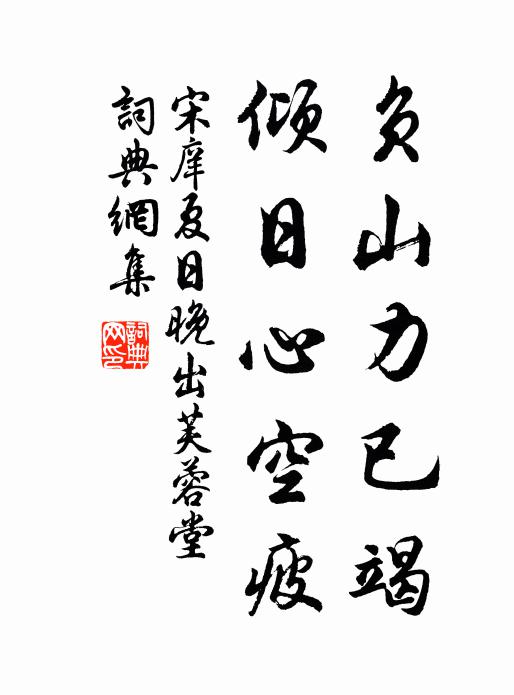 負山力已竭
傾日心空疲
宋庠夏日晚出芙蓉堂
詞典網集
詞典
网印